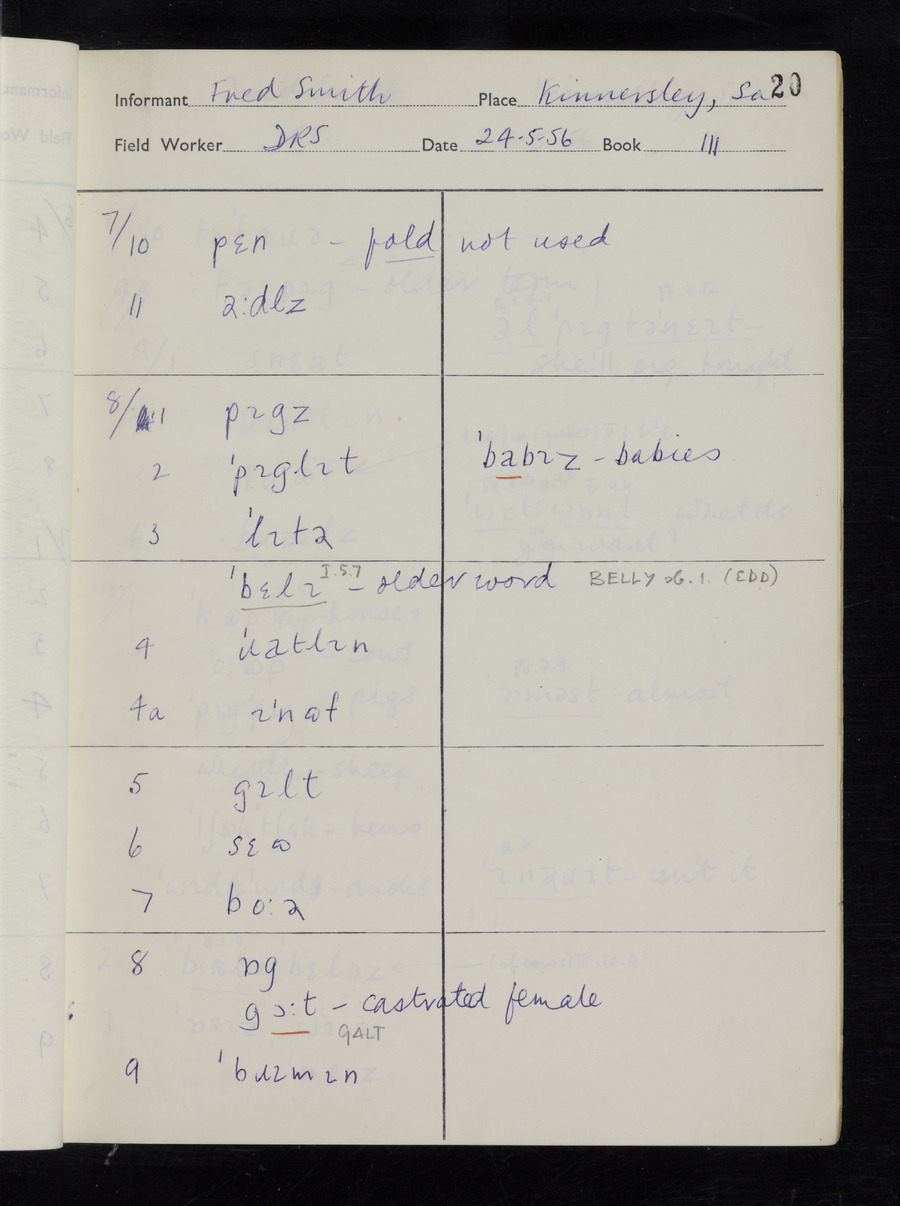 Informant Fred Smith Place Kinnersley, Sa 20
Field Worker DRS Date 24-5-56 Book III
7/10 pɛn – fold not used
11 ə:dlz
8/1 pɪgz
2 'pɪglɪt 'babɪz – babies
3 'lɪtə
'bɛlɪ I.5.7 – older word BELLY sb. 1. (EDD)
4 'ɹatlɪn
4a ɪ'nɷf
5 gɪlt
6 sɛɷ
7 bo:ə
8 ɒg
gɔ:t – castrated female
GALT
9 'bɹɪmɪn